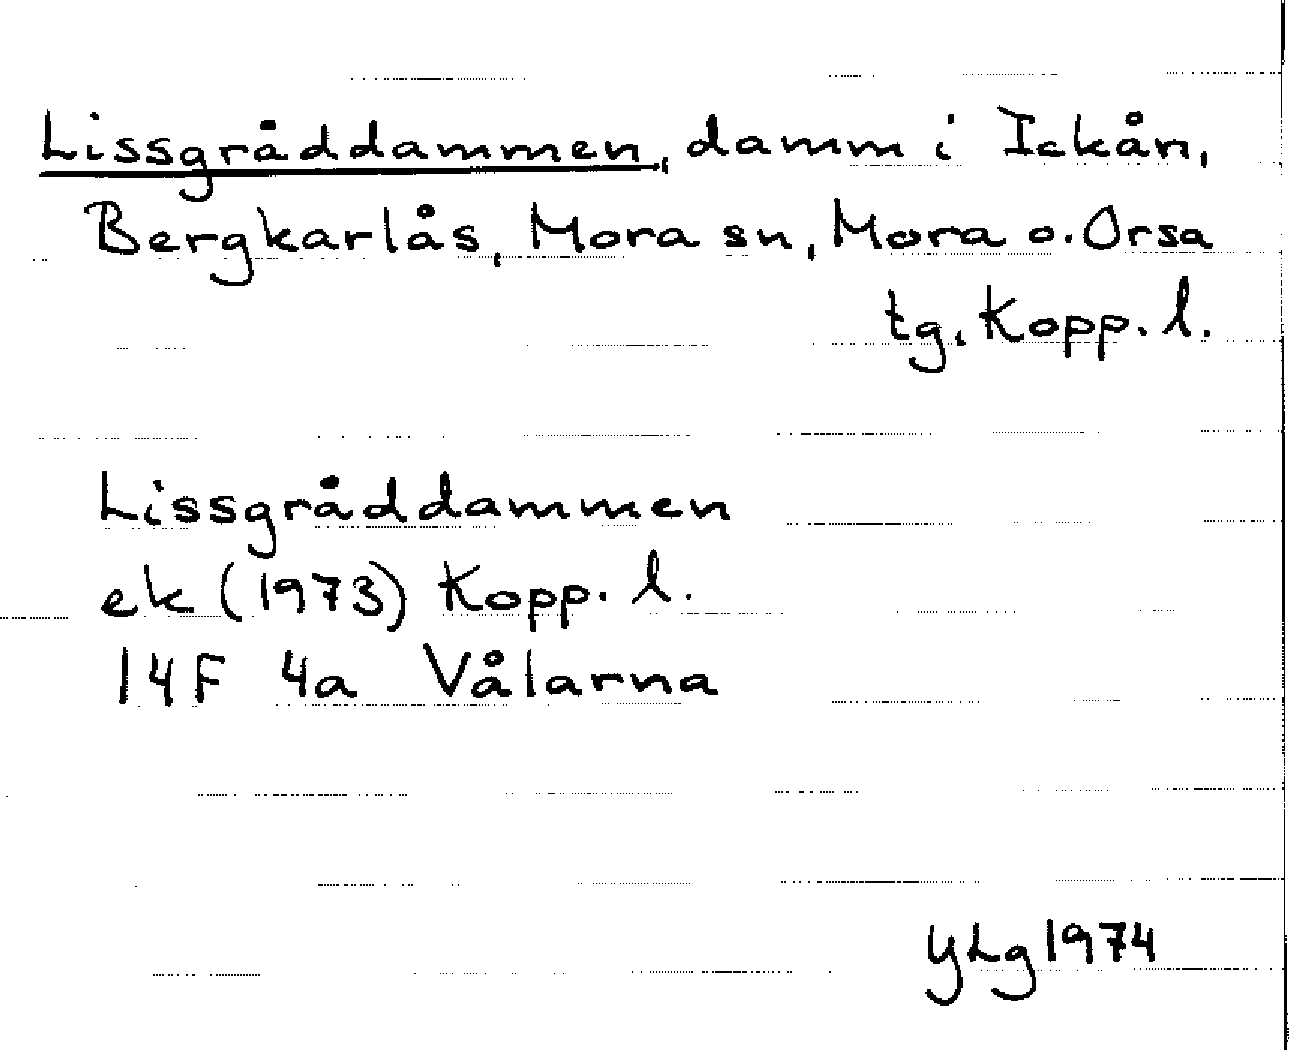 Lissgråddammen, damm i Ickån,
Bergkarlås, Mora sn, Mora o. Orsa
tg, Kopp. l.
Lissgråddammen
ek (1973) Kopp. l.
14F 4a Vålarna
YLg 1974